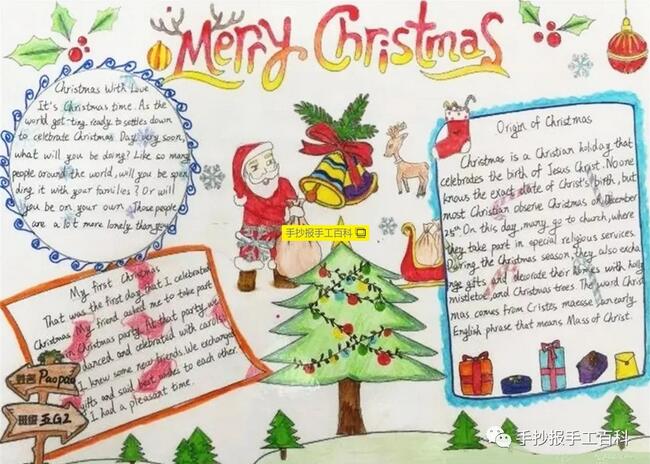 Merry Christmas
Christmas With Love
It's Christmas time. As the
world got-ting ready to settles down
to celebrate Christmas Day very soon,
what will you be doing? Like so many
people around the world, will you be spen
ding it with your families? Or will
you be on your own. Those people
are a lot more lonely than you
My first Christmas
That was the first day that I celebrated
Christmas. My friend asked me to take part
in Christmas party. At that party, we
danced and celebrated with carols.
I knew some new friends. We exchanged
gifts and said best wishes to each other.
I had a pleasant time.
姓名 Paopao
班级 五G2
手抄报手工百科
Origin of Christmas
Christmas is a Christian holiday that
celebrates the birth of Jesus Christ. No one
knows the exact date of Christ's birth, but
most Christian observe Christmas on December
25th On this day, many go to church, where
they take part in special religious services.
During the Christmas season, they also excha
nge gifts and decorate their homes with holly
mistletoe, and Christmas trees. The word Christ
mas comes from Cristes maesse, an early
English phrase that means Mass of Christ.
手抄报手工百科